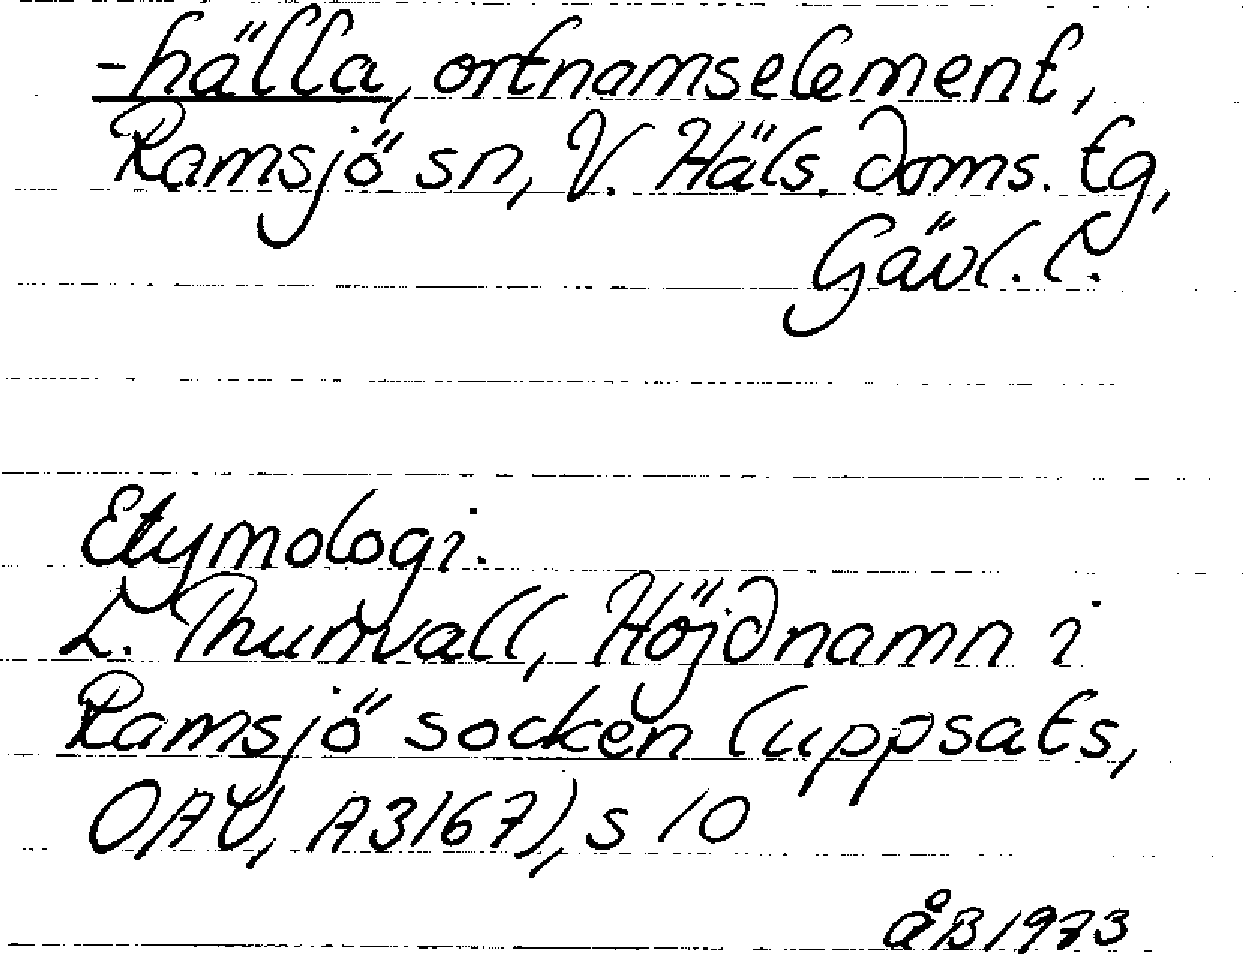 -hälla, ortnamselement,
Ramsjö sn, V. Häls. doms. tg,
Gävl. l.
Etymologi.
L. Thunvall, Höjdnamn i
Ramsjö socken (uppsats,
OAU, A3167), s 10
ÅB 1973